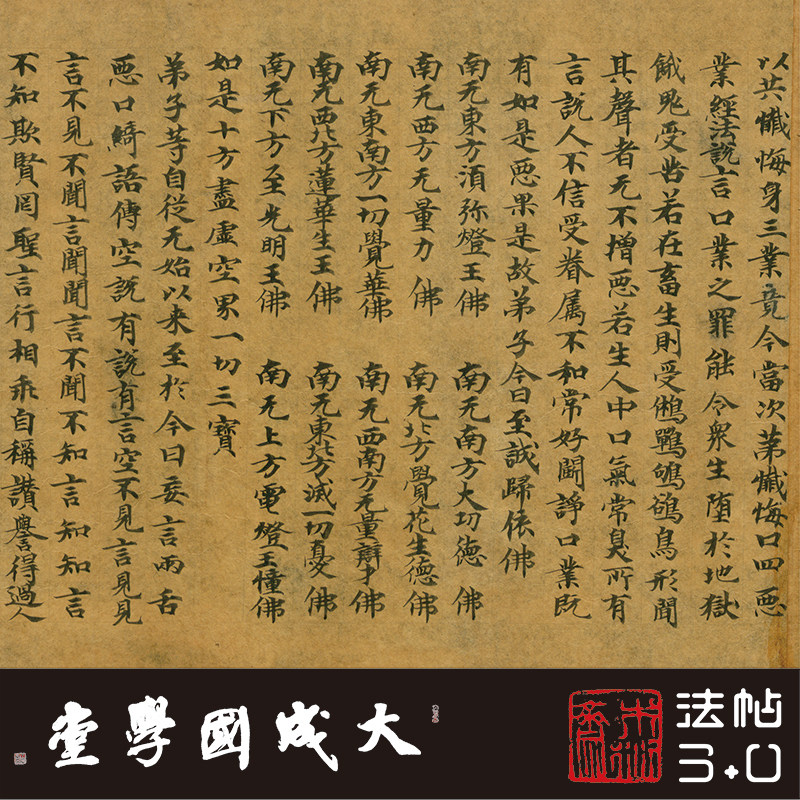 以共懺悔身三業竟今當次第懺悔口四惡
業經法說言口業之罪能令衆生堕於地獄
餓鬼受苦若在畜生則受鵂鶹鴝鵒鳥形聞
其聲者无不憎惡若生人中口氣常臭所有
言說人不信受眷属不和常好鬪諍口業既
有如是惡果是故弟子今日至誠歸依佛
南无東方湏弥燈王佛 南无南方大功德佛
南无西方无量力佛 南无北方覺花生德佛
南无東南方一切覺華佛 南无西南方无量辯才佛
南无西北方蓮華生王佛 南无東北方滅一切憂佛
南无下方至光明王佛 南无上方電燈王幢佛
如是十方盡虛空界一切三寶
弟子等自從无始以来至於今日妄言兩舌
惡口綺語傳空說有說有言空不見言見見
言不見不聞言聞聞言不聞不知言知知言
不知欺賢罔聖言行相乖自稱讃譽得過人
大成國學堂
法帖
3.0